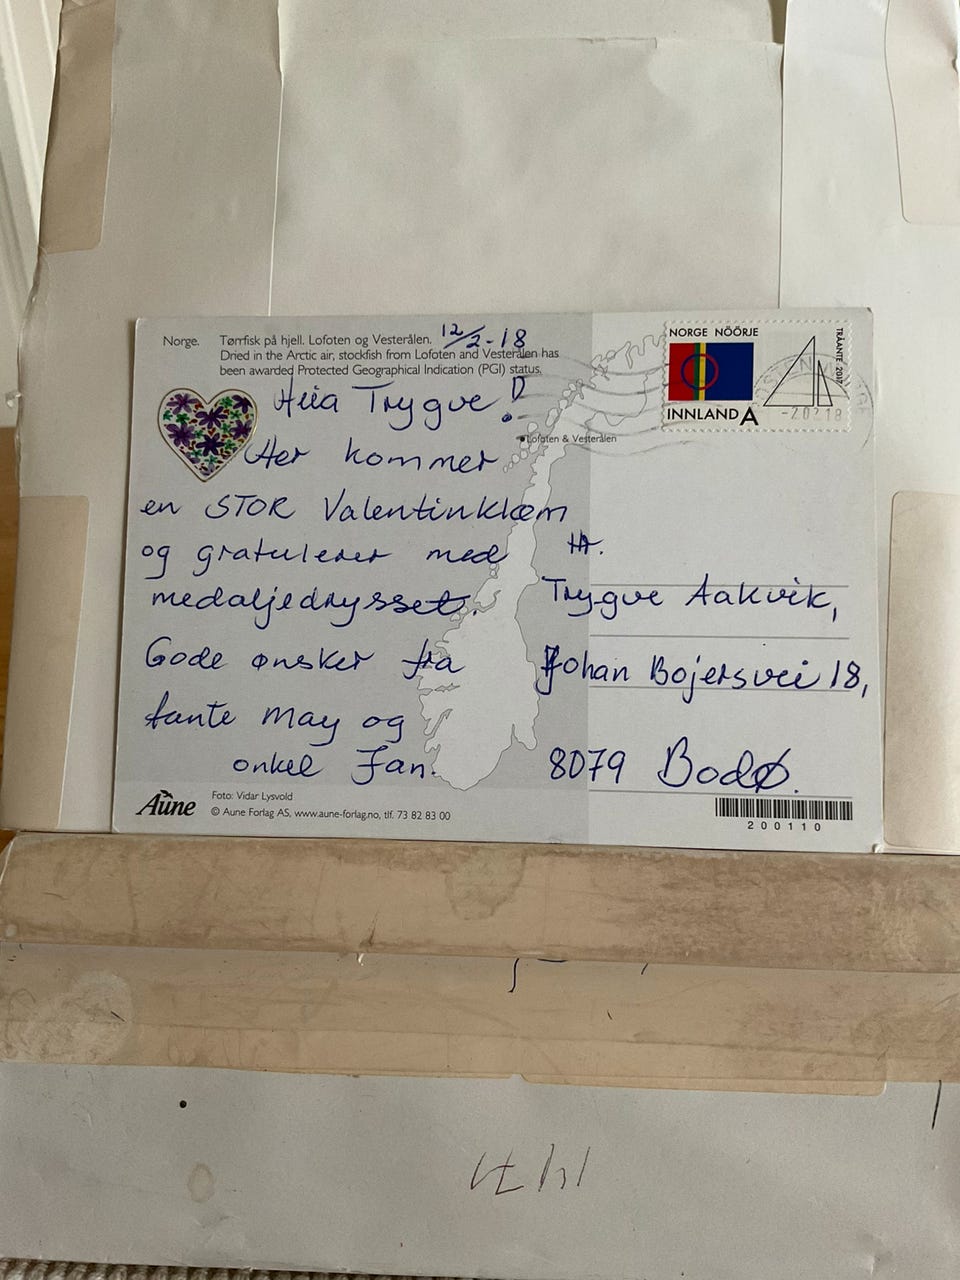 Norge. Tørrfisk på hjell. Lofoten og Vesterålen.
12/2-18
Dried in the Arctic air, stockfish from Lofoten and Vesterålen has
been awarded Protected Geographical Indication (PGI) status.
NORGE NÖÖRJE
TRÅANTE 2017
INNLAND A
Lofoten & Vesterålen
Heia Trygve!
Her kommer
en STOR Valentinklem
og gratulerer med
medaljedrysset.
Gode ønsker fra
tante May og
onkel Jan.
Hr.
Trygve Aakvik,
Johan Bojersvei 18,
8079 Bodø.
Aune
Foto: Vidar Lysvold
© Aune Forlag AS, www.aune-forlag.no, tlf. 73 82 83 00
200110